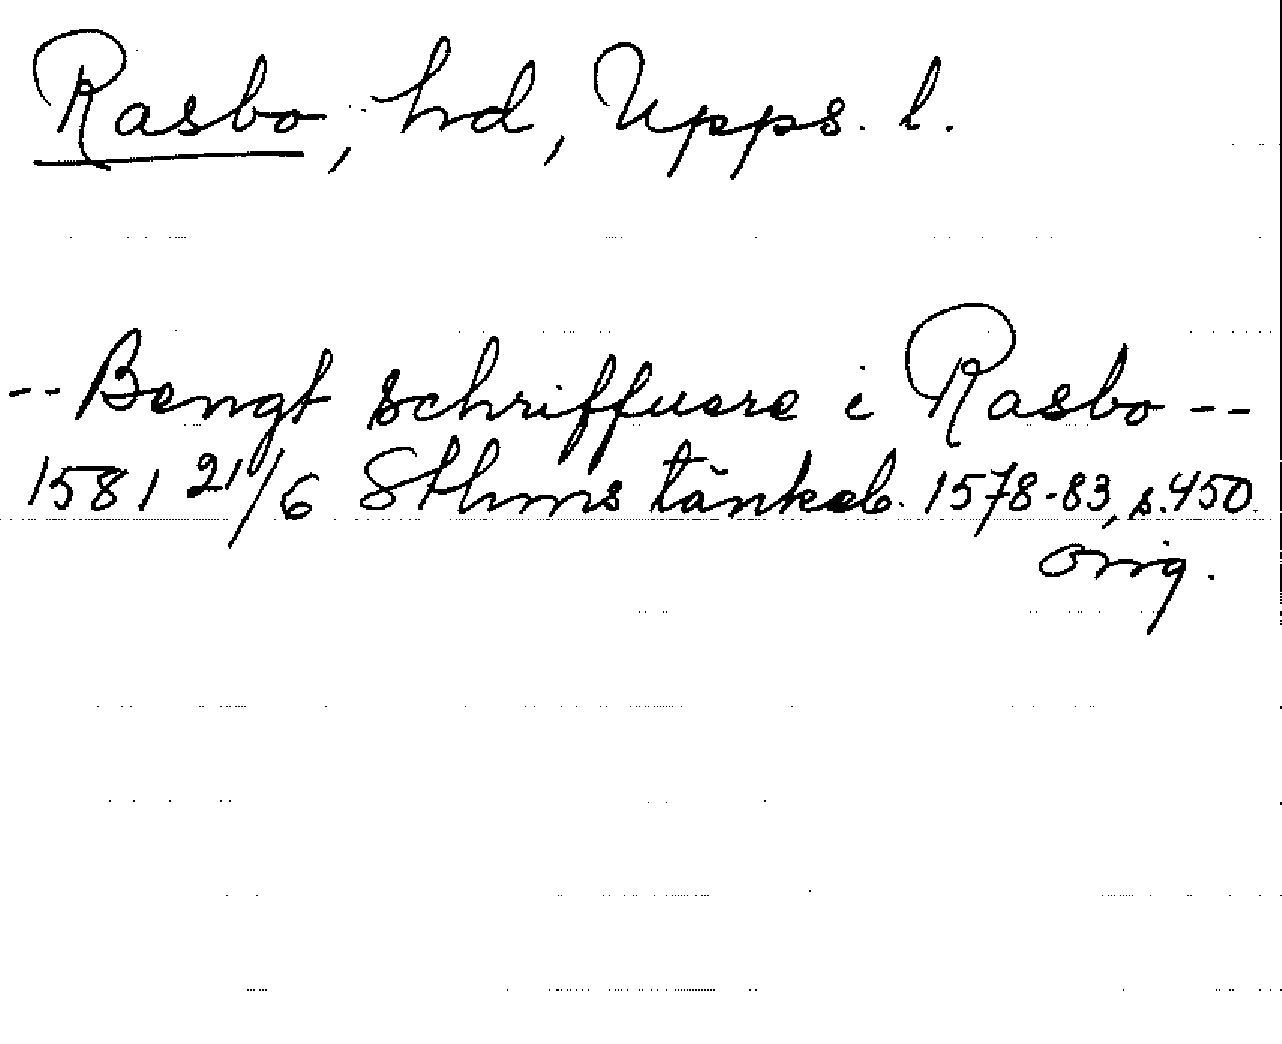 Rasbo, hd, Upps. l.
-- Bengt schriffuere i Rasbo --
1581 21/6 Sthms tänkeb. 1578-83, s. 450
orig.